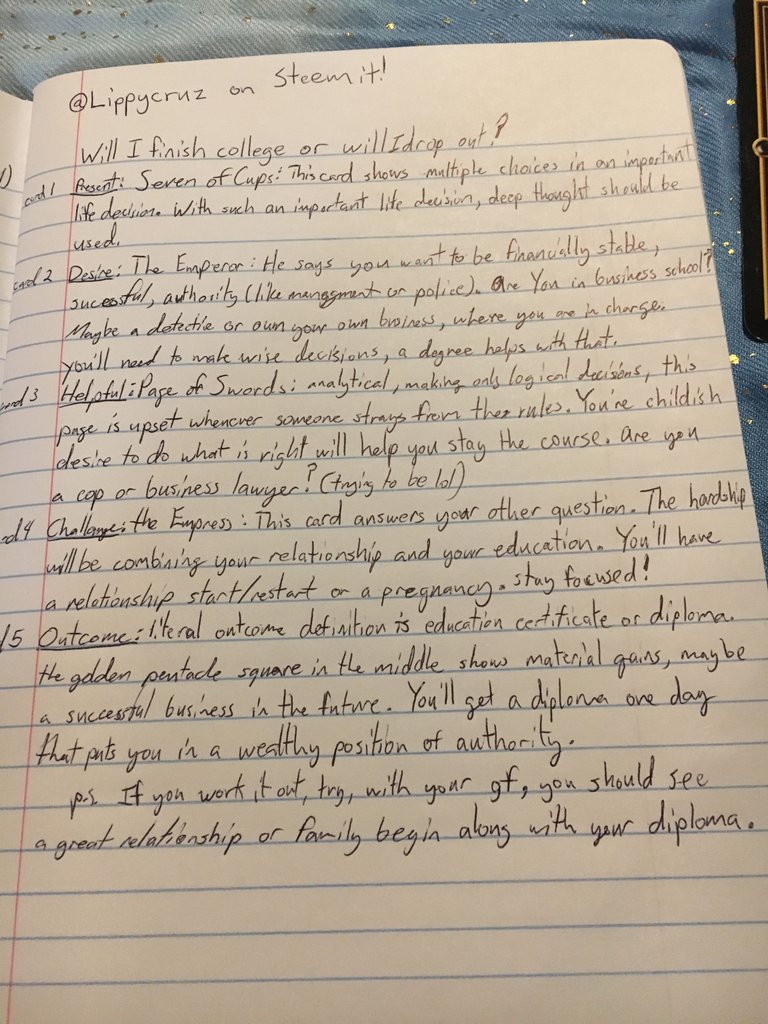 @Lippycruz on Steemit!
Will I finish college or will I drop out?
card 1 Present: Seven of Cups: This card shows multiple choices in an important
life decision. With such an important life decision, deep thought should be
used.
card 2 Desire: The Emperor: He says you want to be financially stable,
sucessful, authority (like mangement or police). Are you in business school?
Maybe a detective or own your own business, where you are in charge.
you'll need to make wise decisions, a degree helps with that.
card 3 Helpful: Page of Swords: analytical, making only logical decisions, this
page is upset whenever someone strays from the rules. You're childish
desire to do what is right will help you stay the course. are you
a cop or business lawyer? (trying to be lol)
rd 4 Challenge: the Empress: This card answers your other question. The hardship
will be combining your relationship and your education. You'll have
a relationship start/restart or a pregnancy. stay focused!
5 Outcome: literal outcome definition is education certificate or diploma.
the golden pentacle square in the middle shows material gains, maybe
a successful business in the future. You'll get a diploma one day
that puts you in a wealthy position of authority.
p.s. If you work it out, try, with your gf, you should see
a great relationship or family begin along with your diploma.